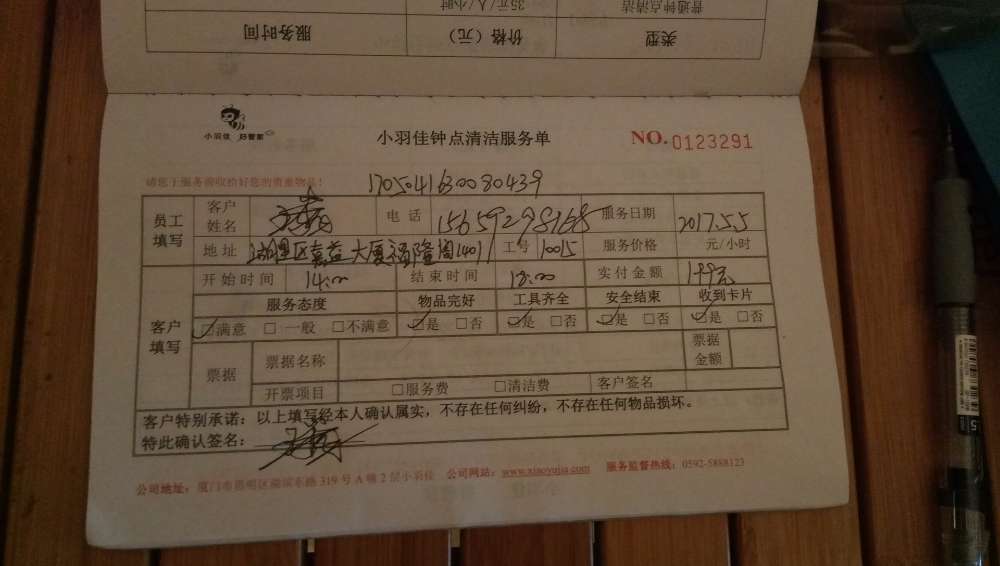 普通钟点清洁 35元/人/小时
类型 价格（元） 服务时间
小羽佳 好管家
小羽佳钟点清洁服务单
NO.0123291
1705041630080439
员工填写 客户姓名 电话 服务日期 2017.5.5
地址 湖里区嘉益大厦福隆阁1401 工号 10015 服务价格 元/小时
客户填写 开始时间 14:00 结束时间 18:00 实付金额 199元
服务态度 物品完好 工具齐全 安全结束 收到卡片
☑满意 □一般 □不满意 ☑是 □否 ☑是 □否 ☑是 □否 ☑是 □否
票据 票据名称 票据金额
开票项目 □服务费 □清洁费 客户签名
客户特别承诺：以上填写经本人确认属实，不存在任何纠纷，不存在任何物品损坏。
特此确认签名：
公司网站：www.xiaoyujia.com 服务监督热线：0592-5888123